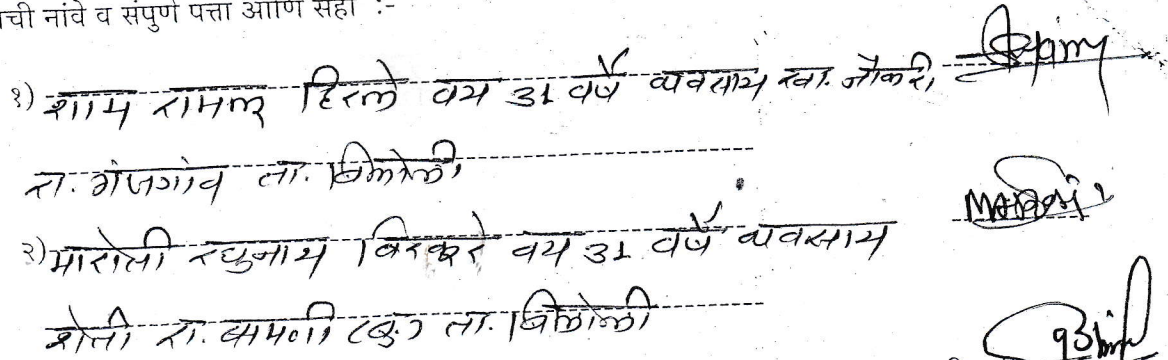 ची नांवे व संपुर्ण पत्ता आणि सही :-
१) शाम रामलू हिरले वय 31 वर्षे व्यवसाय खा. नौकरी,
रा. गंजगांव ता. बिलोली,
२) मारोती रघुनाथ बिरकुरे वय 31 वर्षे व्यवसाय
शेती रा. बामणी (बु.) ता. बिलोली